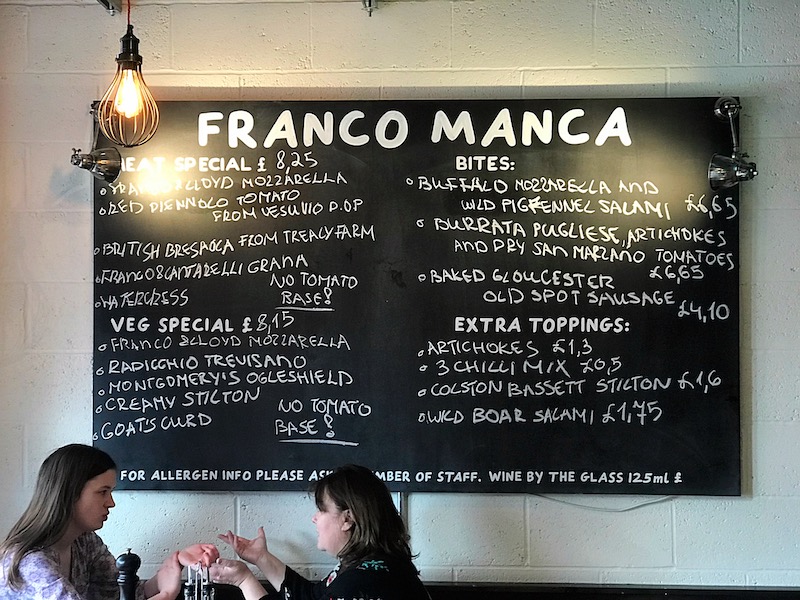 FRANCO MANCA
MEAT SPECIAL £ 8,25
FRANCO & LLOYD MOZZARELLA
RED PIENNOLO TOMATO
FROM VESUVIO D.OP
BRITISH BRESAOLA FROM TREALY FARM
FRANCO & CANTARELLI GRANA
WATERCRESS
NO TOMATO
BASE!
VEG SPECIAL £ 8,15
FRANCO & LLOYD MOZZARELLA
RADICCHIO TREVISANO
MONTGOMERY'S OGLESHIELD
CREAMY STILTON
GOAT'S CURD
NO TOMATO
BASE!
BITES:
BUFFALO MOZZARELLA AND
WILD PIG FENNEL SALAMI £6,65
BURRATA PUGLIESE, ARTICHOKES
AND DRY SAN MARZANO TOMATOES
£6,65
BAKED GLOUCESTER
OLD SPOT SAUSAGE
£4,10
EXTRA TOPPINGS:
ARTICHOKES £1,3
3 CHILLI MIX £0,5
COLSTON BASSETT STILTON £1,6
WILD BOAR SALAMI £1,75
FOR ALLERGEN INFO PLEASE ASK MEMBER OF STAFF. WINE BY THE GLASS 125ml £